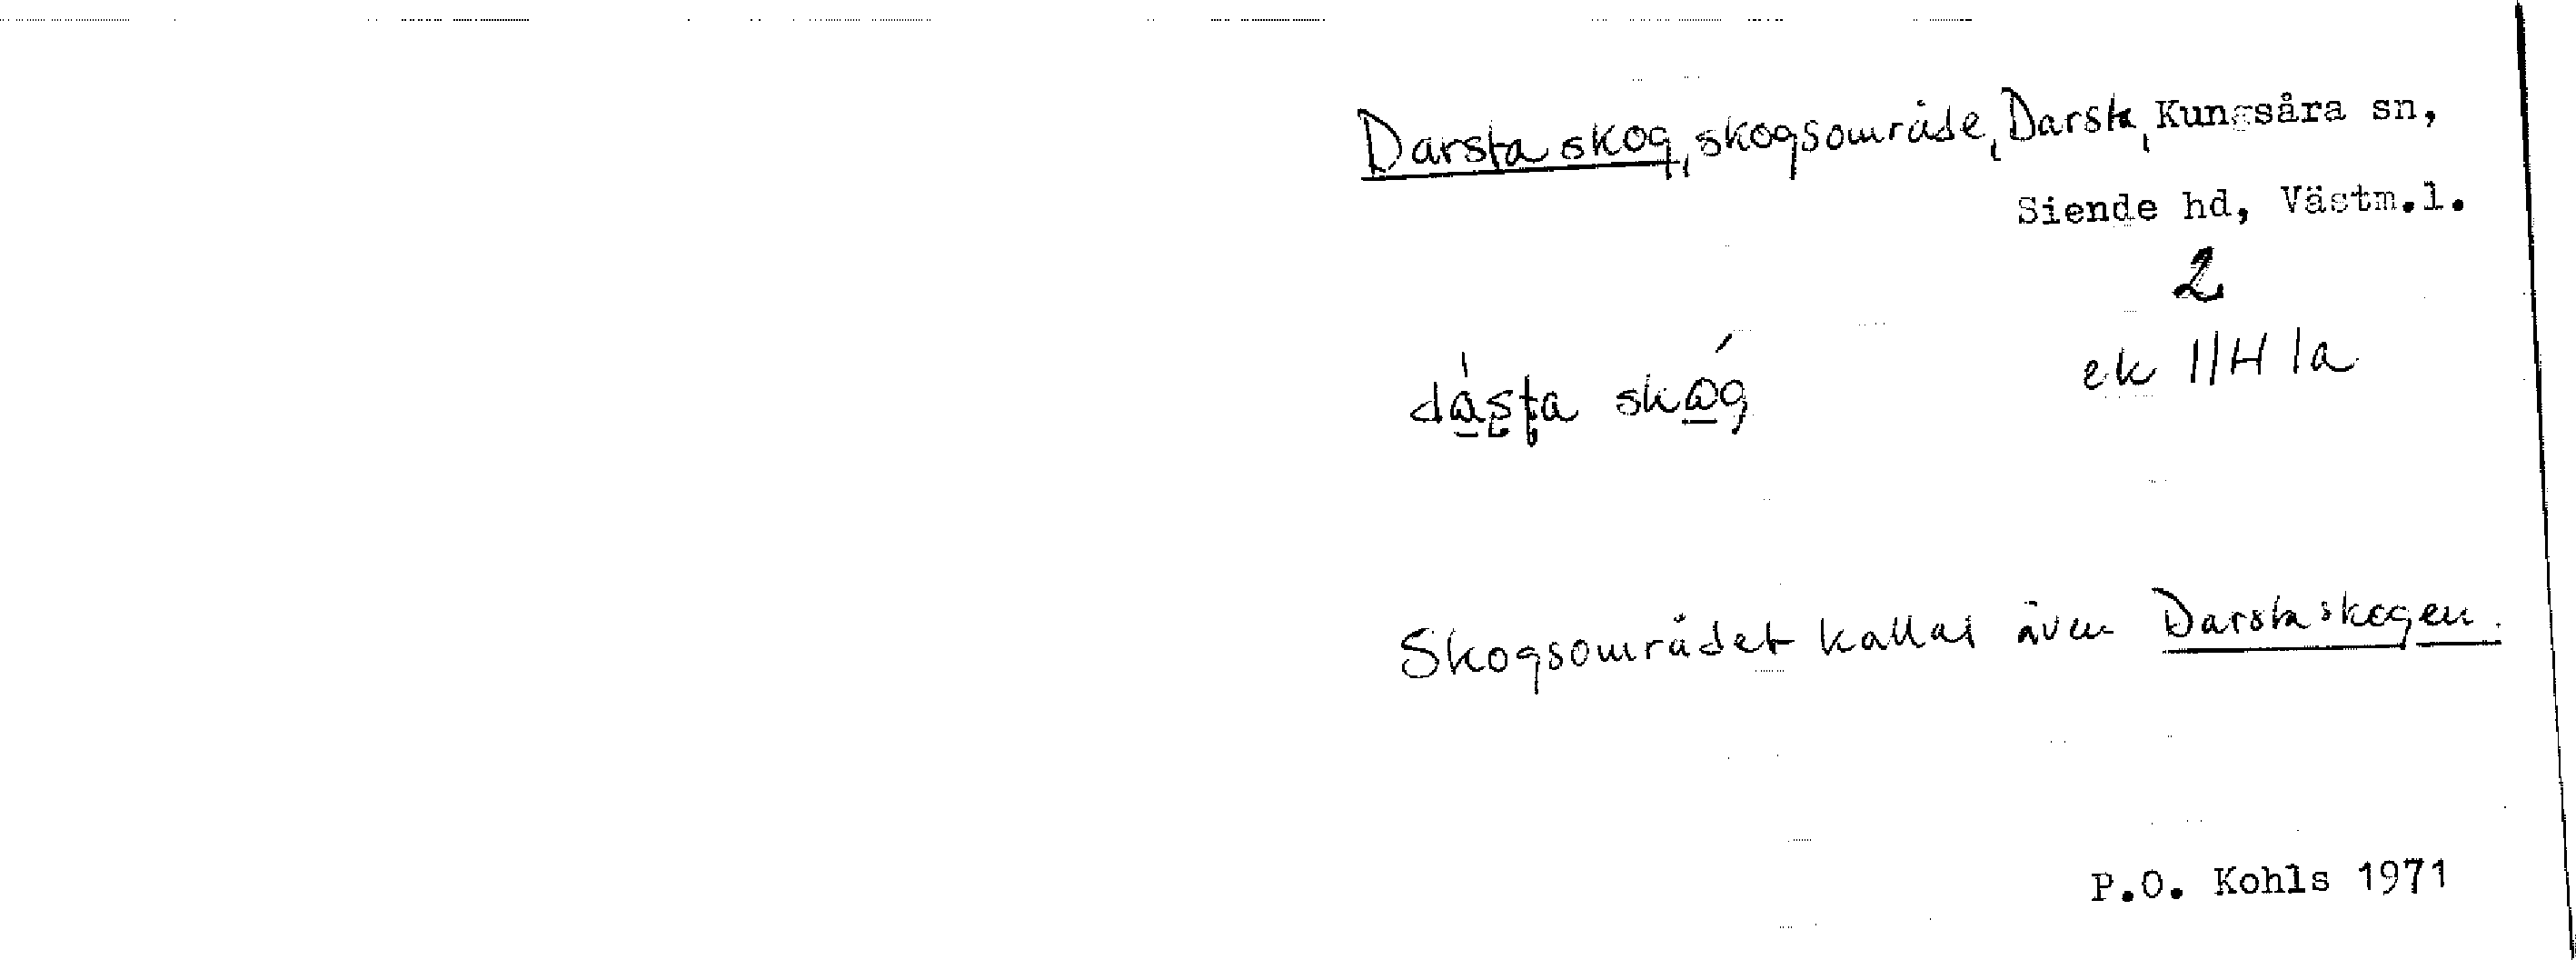 Darsta skog, skogsområde, Darsta, Kungsåra sn,
Siende hd, Västm.l.
2
dásta skóg
ek 11H 1a
Skogsområdet kallas även Darstaskogen.
P.O. Kohls 1971